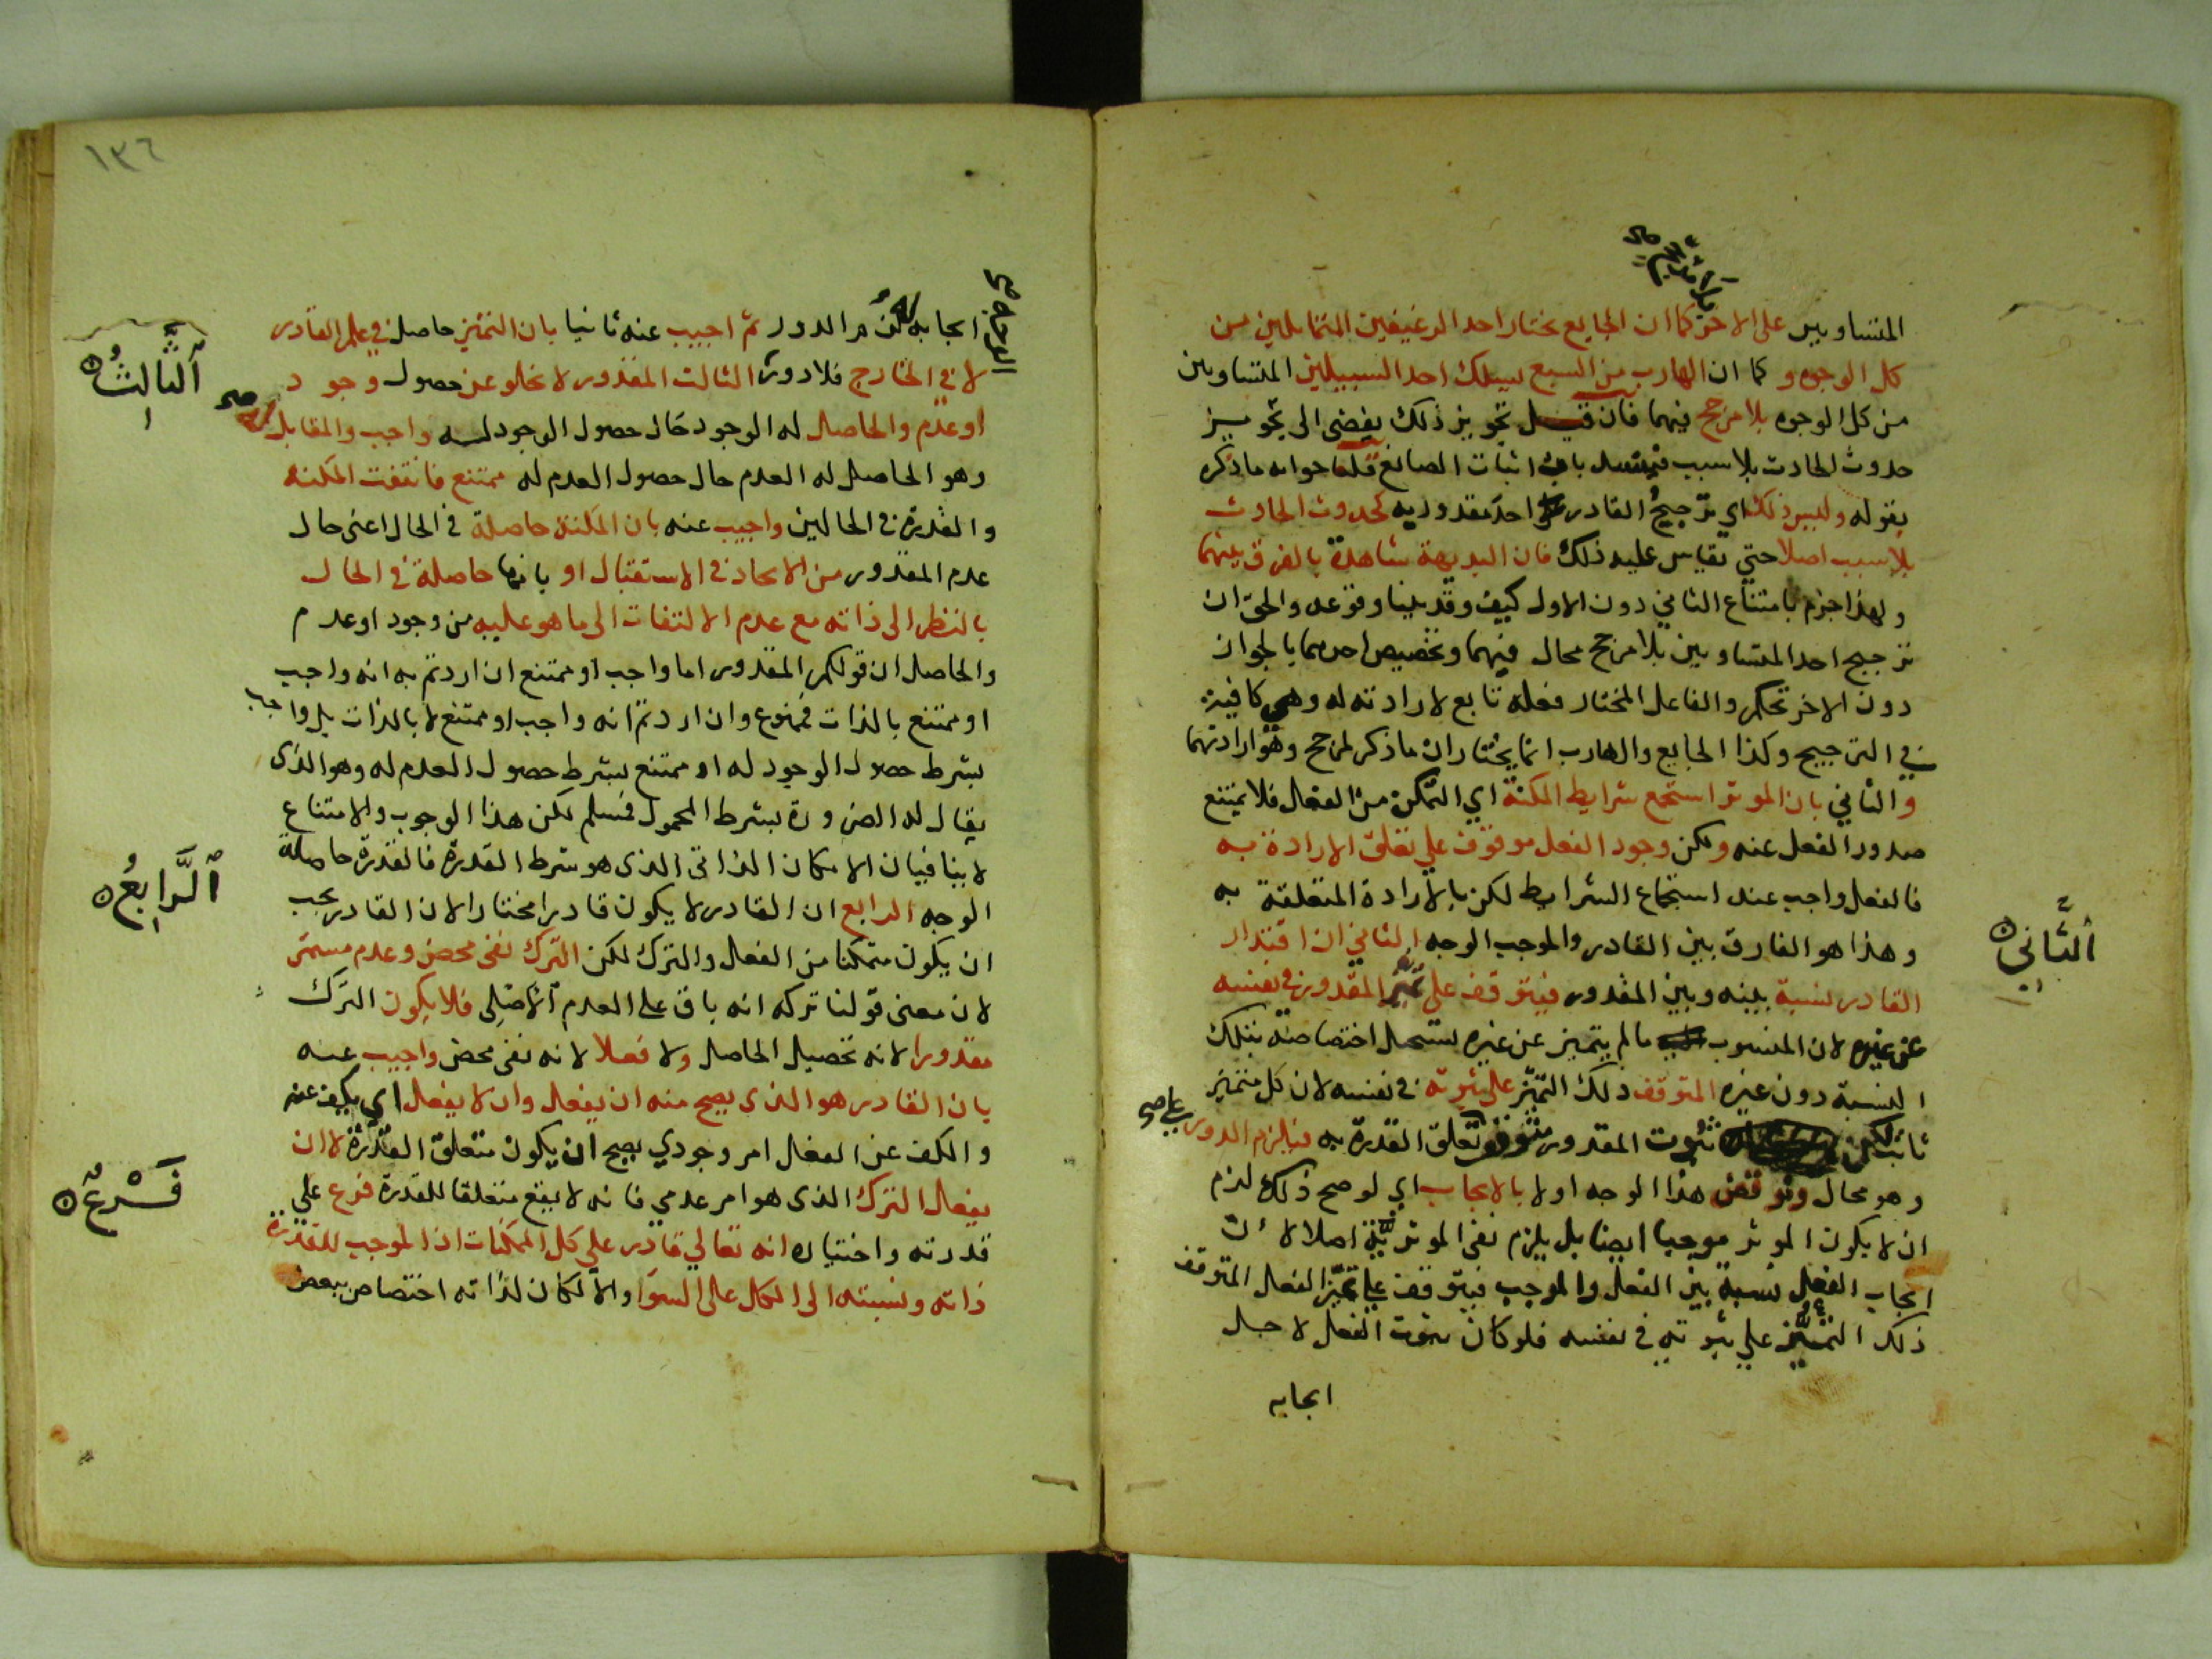 بلا مرجح صح
المتساويين على الاخر كما ان الجايع يختار احد الرغيفين المتماثلين من
كل الوجوه و كما ان الهارب من السبع يسلك احد السبيلين المتساويين
من كل الوجوه بلا مرجح فيهما فان قيل تجويز ذلك يفضى الى تجويز
حدوث الحادث بلا سبب فينسد باب اثبات الصانع قلنا جوابه ما ذكره
بقوله وليس ذلك اي ترجيح القادر احد مقدوريه كحدوث الحادث
بلا سبب اصلا حتى يقاس عليه ذلك فان البديهة شاهدة بالفرق بينهما
ولهذا جزم بامتناع الثاني دون الاول كيف وقد بينا وقوعه والحق ان
ترجيح احد المتساويين بلا مرجح محال فيهما وتخصيص احدهما بالجواز
دون الاخر تحكم والفاعل المختار فعله تابع لارادته له وهي كافية
في الترجيح وكذا الجايع والهارب انما يختاران ما ذكر لمرجح وهو ارادتهما
والثاني بان الموثر استجمع شرايط المكنة اي التمكن من الفعل فلا يمتنع
صدور الفعل عنه ولكن وجود الفعل موقوف علي تعلق الارادة به
فالفعل واجب عند استجماع الشرايط لكن بالارادة المتعلقة به
وهذا هو الفارق بين القادر والموجب الوجه الثاني ان اقتدار
الثَّانِي
القادر نسبة بينه وبين المقدور فيتوقف على تميز المقدور في نفسه
عن غيره لان المنسوب ما لم يتميز عن غيره يستحيل اختصاصه بتلك
النسبة دون غيره المتوقف ذلك التميز علي ثبوته في نفسه لان كل متميز
ثابت لكن ثبوت المقدور متوقف تعلق القدرة به فيلزم الدور
علي صح
وهو محال ونوقض هذا الوجه اولا بالايجاب اي لو صح ذلك لزم
ان لا يكون الموثر موجبا ايضا بل يلزم نفى الموثرية اصلا لان
ايجاب الفعل نسبة بين الفعل والموجب فيتوقف على تميز الفعل المتوقف
ذلك التميز علي ثبوته في نفسه فلو كان ثبوت الفعل لاجل
ايجابه
١٣٦
ايجابه لزم الدور ثم اجيب عنه ثانيا بان التميز حاصل في علم القادر
لا في الخارج فلا دور الثالث المقدور لا يخلو عن حصول وجود
الوجه صح
الثَّالِثُ
او عدم والحاصل له الوجود حال حصول الوجود له واجب والمقابل
وهو الحاصل له العدم حال حصول العدم له ممتنع فانتفت المكنة
والقدرة في الحالين واجيب عنه بان المكنة حاصلة في الحال اعنى حال
عدم المقدور من الايجاد في الاستقبال او بانها حاصلة في الحال
بالنظر الى ذاته مع عدم الالتفات الى ما هو عليه من وجود او عدم
والحاصل ان قولكم المقدور اما واجب او ممتنع ان اردتم به انه واجب
او ممتنع بالذات فممنوع وان اردتم انه واجب او ممتنع لا بالذات بل واجب
بشرط حصول الوجود له او ممتنع بشرط حصول العدم له وهو الذى
يقال له الضرورة بشرط المحمول فمسلم لكن هذا الوجوب والامتناع
لا ينافيان الامكان الذاتى الذى هو شرط القدرة فالقدرة حاصلة
الوجه الرابع ان القادر لا يكون قادرا مختارا لان القادر يجب
الرَّابِعُ
ان يكون متمكنا من الفعل والترك لكن الترك نفى محض وعدم مستمر
لان معنى قولنا تركه انه باق على العدم الاصلى فلا يكون الترك
مقدورا لانه تحصيل الحاصل ولا فعلا لانه نفى محض واجيب عنه
بان القادر هو الذي يصح منه ان يفعل وان لا يفعل اي يكف عنه
والكف عن الفعل امر وجودي يصح ان يكون متعلق القدرة لا ان
يفعل الترك الذى هو امر عدمي فانه لا يقع متعلقا للقدرة فرع علي
فَرْعٌ
قدرته واختياره انه تعالي قادر علي كل الممكنات اذ الموجب للقدرة
ذاته ونسبته الى الكل على السوا والا لكان لذاته اختصاص ببعض